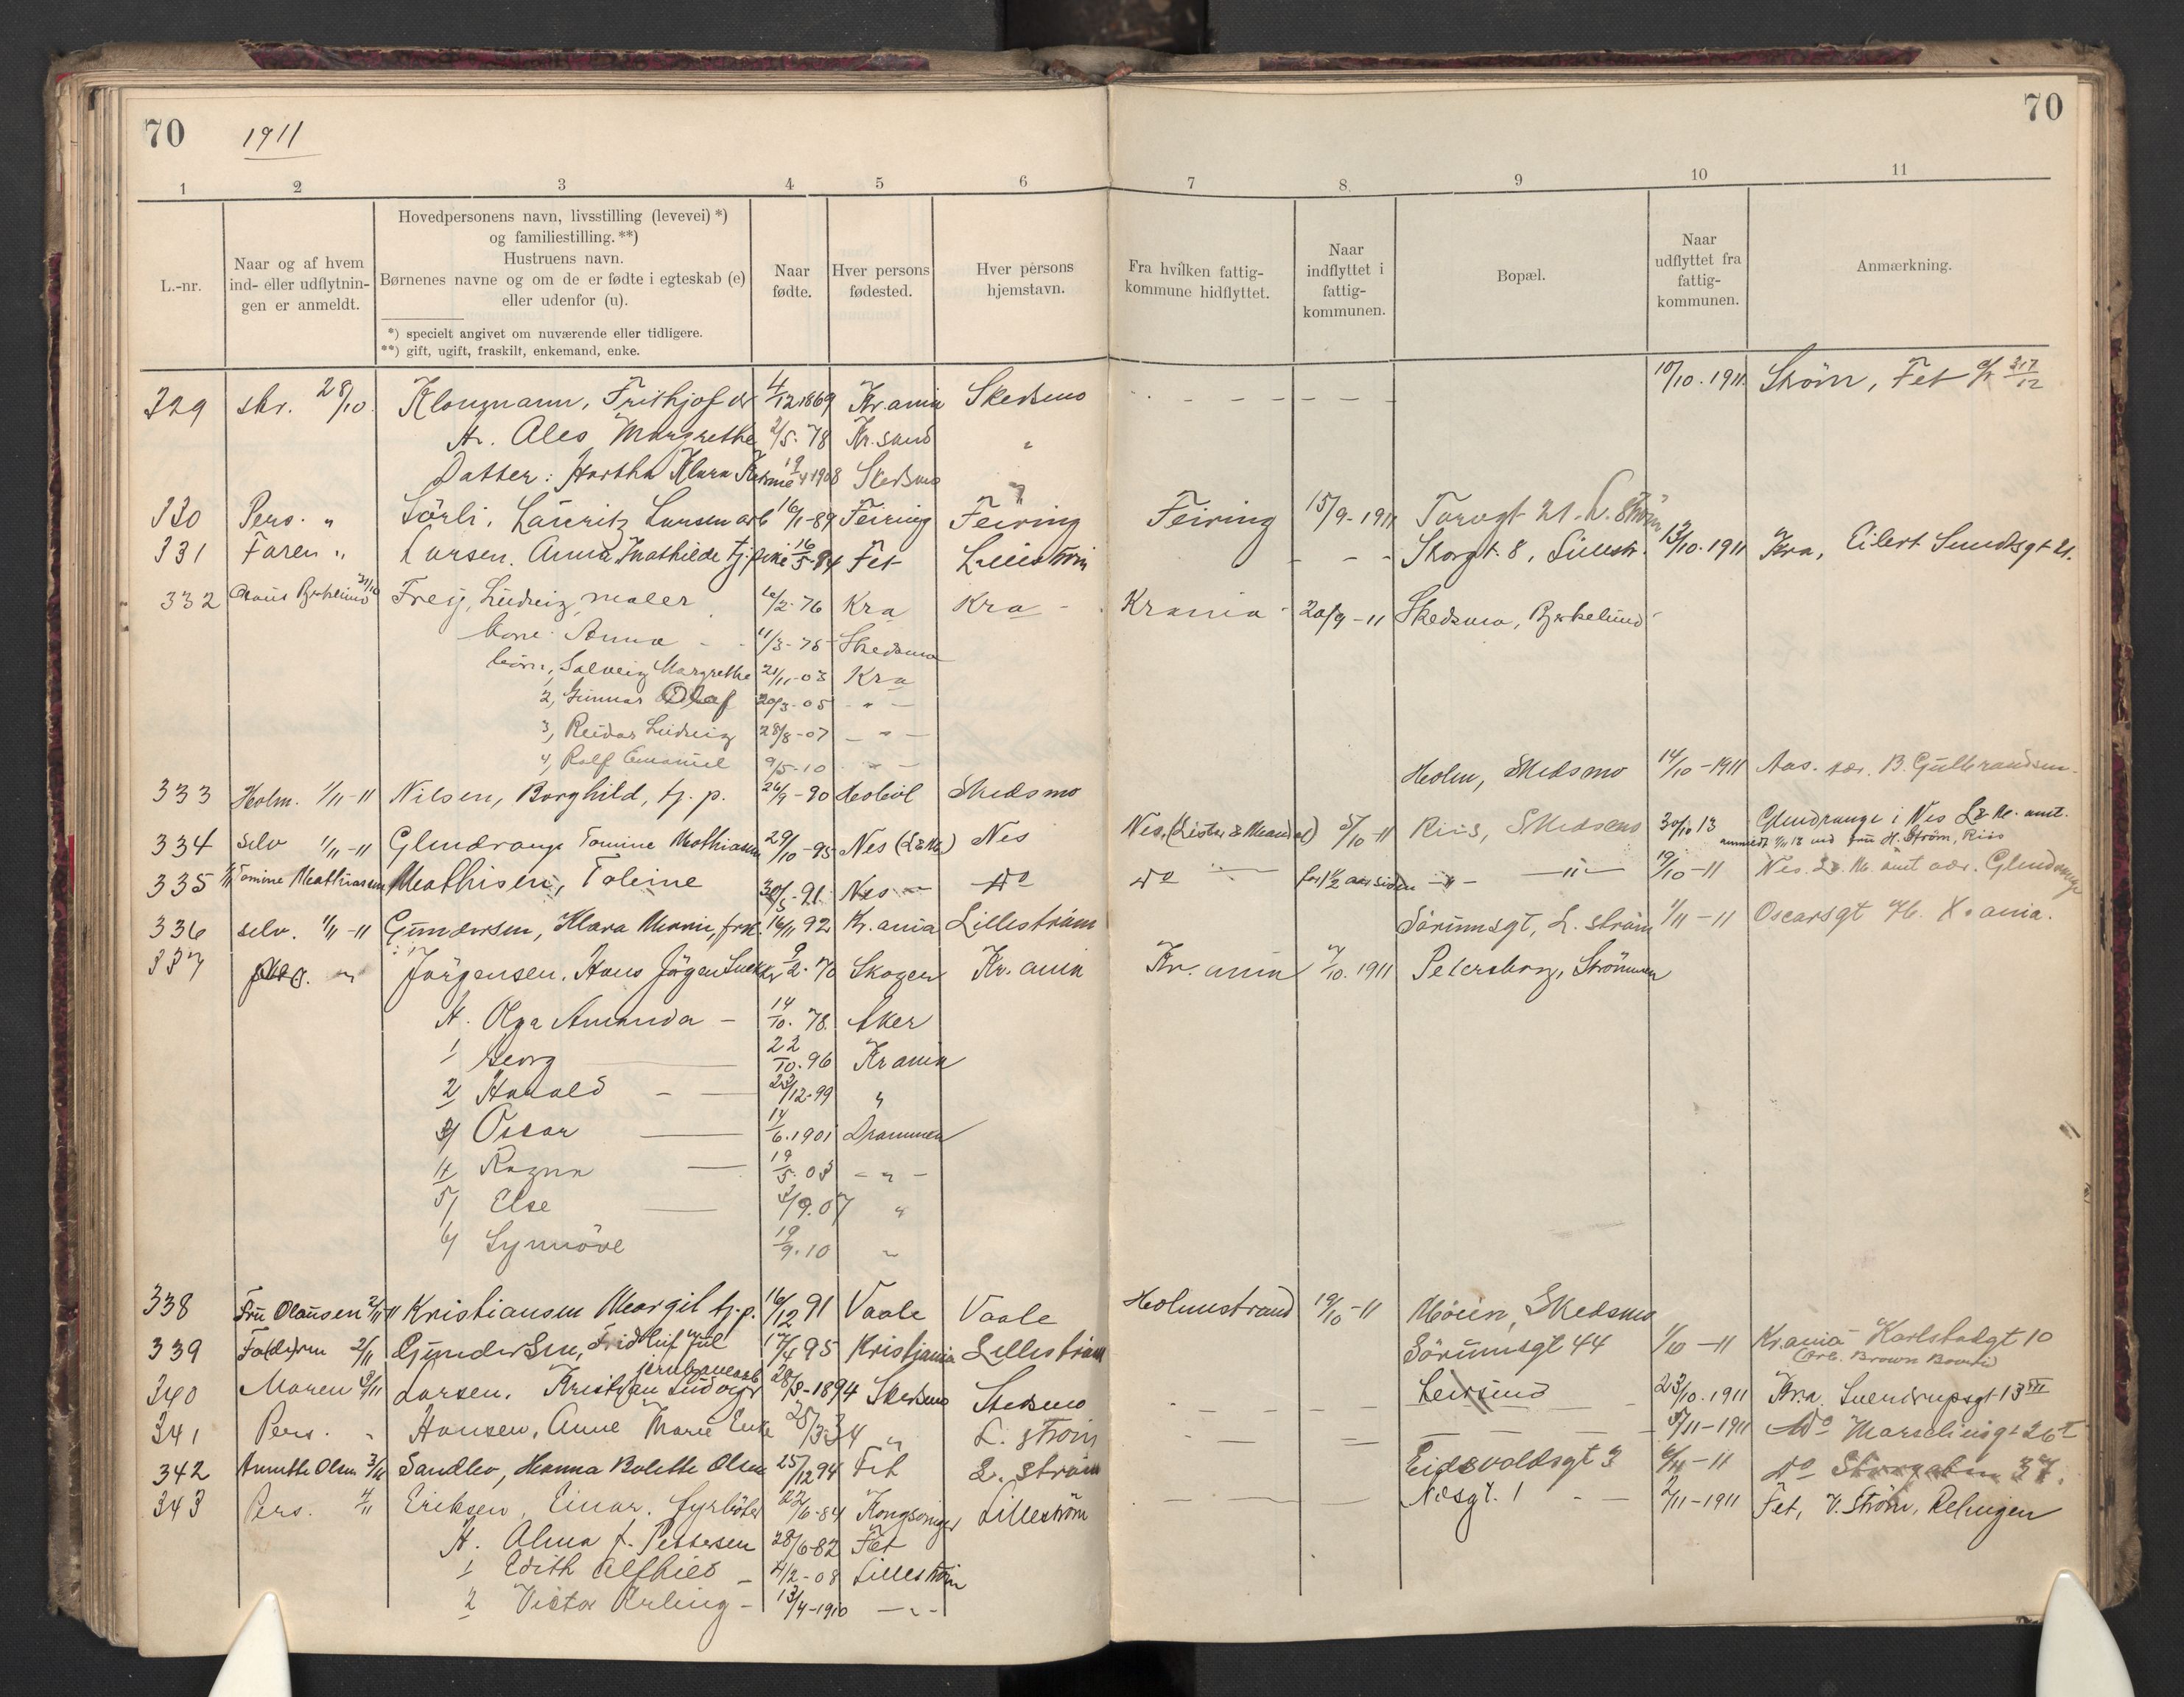 70 1911 70
1 2 3 4 5 6 7 8. 9 10 11
L.-nr.
Naar og af hvem
ind- eller udflytnin-
gen er anmeldt.
Hovedpersonens navn, livsstilling (levevei) *)
og familiestilling. **)
Hustruens navn.
Børnenes navne og om de er fødte i egteskab (e)
eller udenfor (u).
*) specielt angivet om nuværende eller tidligere.
**) gift, ugift, fraskilt, enkemand, enke.
Naar
fødte.
Hver persons
fødested.
Hver persons
hjemstavn.
Fra hvilken fattig-
kommune hidflyttet.
Naar
indflyttet i
fattig-
kommunen.
Bopæl.
Naar
udflyttet fra
fattig-
kommunen.
Anmærkning.
329 skr. 28/10 Klouman, Frithjof 4/12 1869 Kr.ania Skedsmo - - - - - - 10/10. 1911. Strøm, Fet 317/12
H. Ales Margrethe 2/5. 78 Kr.sand "
Datter: Hertha Klara 1908 Skedsmo "
330 Pers. " Sörli, Lauritz Larsen arb 16/1-89 Feiring Feiring Feiring 15/9-1911 Torvgt 21. L.ström
331 Faren " Larsen. Anna Mathilde tj.pike 16/5-94 Fet Lilleström - - - Storgt. 8, Lillestr. 13/10. 1911 Kra, Eilert Sundtsgt 21.
332 31/10 Frey, Ludvig, maler 6/2-76 Kra Kra - Krania - 20/9-11 Skedsmo, Byrkelund
kone: Anna - - 11/3-75 Skedsmo
börn, Solveig Margrethe 21/11-03 Kra
2, Gunnar Olaf 20/3-05 - " -
3, Reidar Ludvig 28/8-07 - " -
4, Rolf Emanuel 9/5-10 - " -
333 Holm. 1/11-11 Nilsen, Borghild, tj. p. 26/9-90 Hobøl Skedsmo Holm, Skedsmo 14/10-1911 Aas. adr. B. Gulbrandsen.
334 selv 1/11-11 Glendrange Tomine Mathiasen 29/10-95 Nes (L&M) Nes Nes. (Lister & Mandal) 5/10-11 Riis, Skedsmo 30/10 13 Glendrange i Nes L& M. amt.
anmeldt 1/11 13 ved fru H. Ström, Riis
335 1/11 Tomine Mathiasen Mathisen, Toline 30/5-91 Nes - Do Do - for 1 1/2 aar siden - " - - " - 19/10-11 Nes. L& M. amt adr. Glendrange
336 selv. 1/11-11 Gundersen, Klara Minni, frk. 16/11 92 Kr.ania Lilleström Sörumsgt, L.ström 1/11-11 Oscarsgt 76. K.ania.
337 pers. " Jörgensen. Hans Jörgen 9/2. 70 Skogen Kr. ania Kr. ania 7/10. 1911 Petersborg, Strömmen
H. Olga Amanda - 14/10. 78. Aker
1/ Georg 22/10. 96 Kr ania
2/ Harald - - 23/12-99 "
3/ Oscar 14/6. 1901 Drammen
4/ Ragna 19/5. 03 - " -
5/ Else 4/9. 07 "
6/ Synnöve 19/9. 10 "
338 Fru Olausen 2/11-11 Kristiansen Margit tj.p. 16/12 91 Vaale Vaale Holmestrand 19/10-11 Moen, Skedsmo
339 Faderen 2/11 Gundersen, Fridleif Jul 17/4 95 Kristjania Lilleström Sörumsgt 44 1/10-11 Kr.ania Karlstadgt 10
(arb. Brown Boveri)
jernbanearb
340 Moren 2/11 Larsen. Kristjan Ludvig 28/8-1894 Skedsmo Skedsmo - - - - - Leirsund 23/10. 1911 Kr.a. Svendrupsgt 13 III
341 Pers. " Hansen, Anne Marie Enke 25/3-34 " L. ström - - - - - - 5/11-1911 Do Marseliusgt 26 I
342 Annette Olsen 3/11 Sandlev, Hanna Bolette Olsen 25/12 94 Fet L. ström Eidsvoldsgt 3 6/11-11 Do Storgaten 37.
343 Pers. 4/11 Eriksen, Einar. fyrböter 22/6-84 Kongsvinger Lilleström - - - Nesgt. 1 - - 2/11-1911 Fet, V. Ström, Relingen
H. Alma f. Pettersen 28/6-82 Fet
1/ Edith Alfhild - 4/2-08 Lilleström
2 Victor Erling - 13/4-1910 - " -